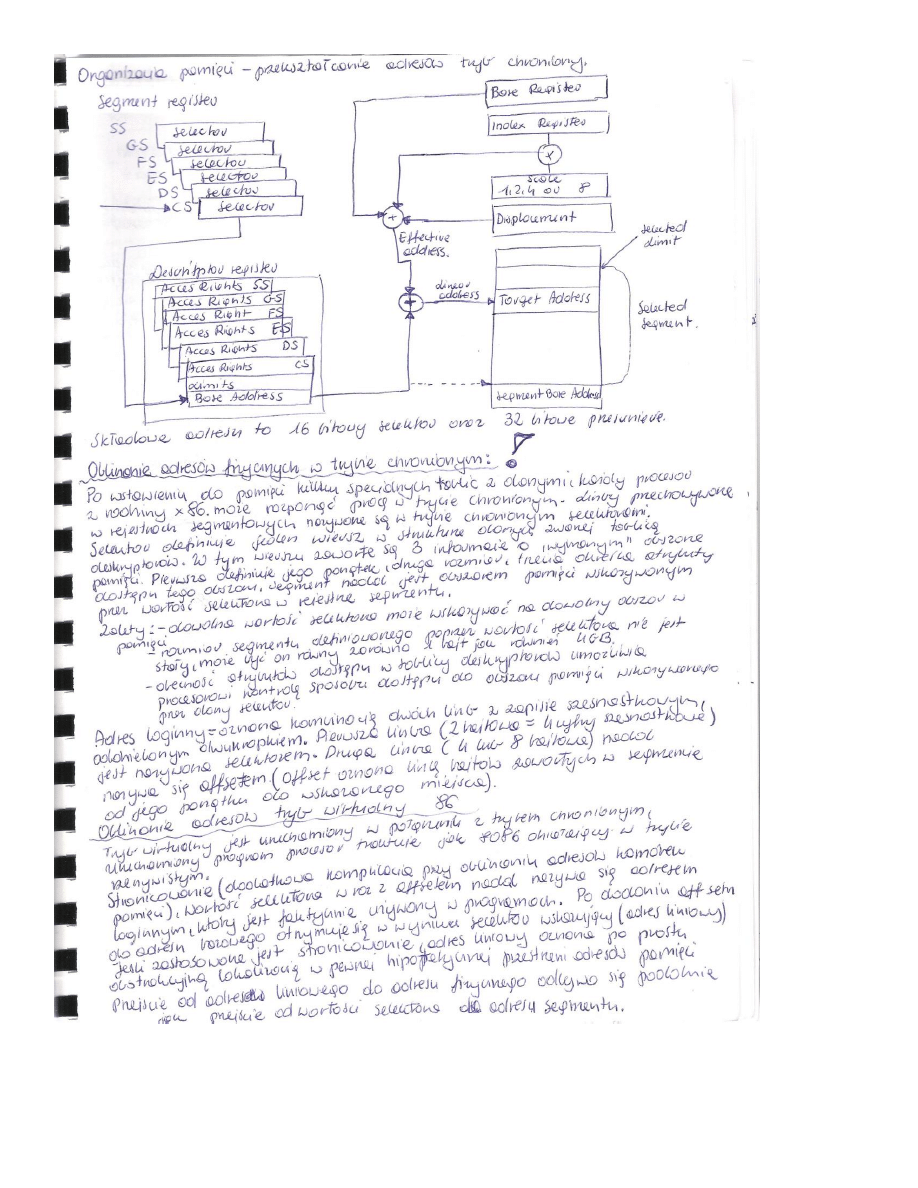 Organizacja pamięci – przekształcanie adresów tryb chroniony.
Segment register
SS selector
GS selector
FS selector
ES selector
DS selector
CS selector
Base Register
Index Register
x
Scale
1,2,4 or 8
Displacement
+
Effective
address.
Descriptor register
Acces Rights SS
Acces Rights GS
Acces Right FS
Acces Rights ES
Acces Rights DS
Acces Rights CS
Limits
Base Address
+
linear
address
selected
limit
Target Address
Selected
segment.
Segment Base Address
Składowe adresu to 16 bitowy selektor oraz 32 bitowe przesunięcie.
Obliczanie adresów fizycznych w trybie chronionym: !
Po wstawieniu do pamięci kilku specjalnych tablic z danymi, każdy procesor
z rodziny x86. może rozpocząć pracę w trybie chronionym. Liczby przechowywane
w rejestrach segmentowych nazywane są w trybie chronionym selektorami.
Selektor definiuje jeden wiersz w strukturze danych zwanej tablicą
deskryptorów. W tym wierszu zawarte są 3 informacje o „wycinanym” obszarze
pamięci. Pierwsza definiuje jego początek, druga rozmiar, trzecia określa atrybuty
dostępu tego obszaru. Segment nadal jest obszarem pamięci wskazywanym
przez wartość selektora w rejestrze segmentu.
Zalety: – dowolna wartość selektora może wskazywać na dowolny obszar w
pamięci
– rozmiar segmentu definiowanego poprzez wartość selektora nie jest
stały, może być on równy zarówno 1 bajt jak również 4GB.
– obecność atrybutów dostępu w tablicy deskryptorów umożliwia
procesorowi kontrolę sposobu dostępu do obszaru pamięci wskazywanego
przez dany selektor.
Adres logiczny = oznacza kombinację dwóch liczb z zapisie szesnastkowym,
oddzielonym dwukropkiem. Pierwsza liczba (2 bajtowa = 4 cyfry szesnastkowe)
jest nazywana selektorem. Druga liczba (4 lub 8 bajtowa) nadal
nazywa się offsetem. (offset oznacza liczbę bajtów zawartych w segmencie
od jego początku do wskazanego miejsca).
Obliczanie adresów tryb wirtualny 86
Tryb wirtualny jest uruchamiany w połączeniu z trybem chronionym,
uruchamiany program procesor traktuje jak 8086 działający w trybie
rzeczywistym.
Stronicowanie (dodatkowa komplikacja przy obliczaniu adresów komórek
pamięci), wartość selektora wraz z offsetem nadal nazywa się adresem
logicznym, który jest faktycznie używany w programach. Po dodaniu offsetu
do adresu bazowego otrzymuje się w wyniku selektor wskazujący (adres liniowy)
Jeśli zastosowane jest stronicowanie, adres liniowy oznacza po prostu
abstrakcyjną lokalizację w pewnej hipotetycznej przestrzeni adresów pamięci
Przejście od adresu liniowego do adresu fizycznego odbywa się podobnie
jak przejście od wartości selektora do adresu segmentu.